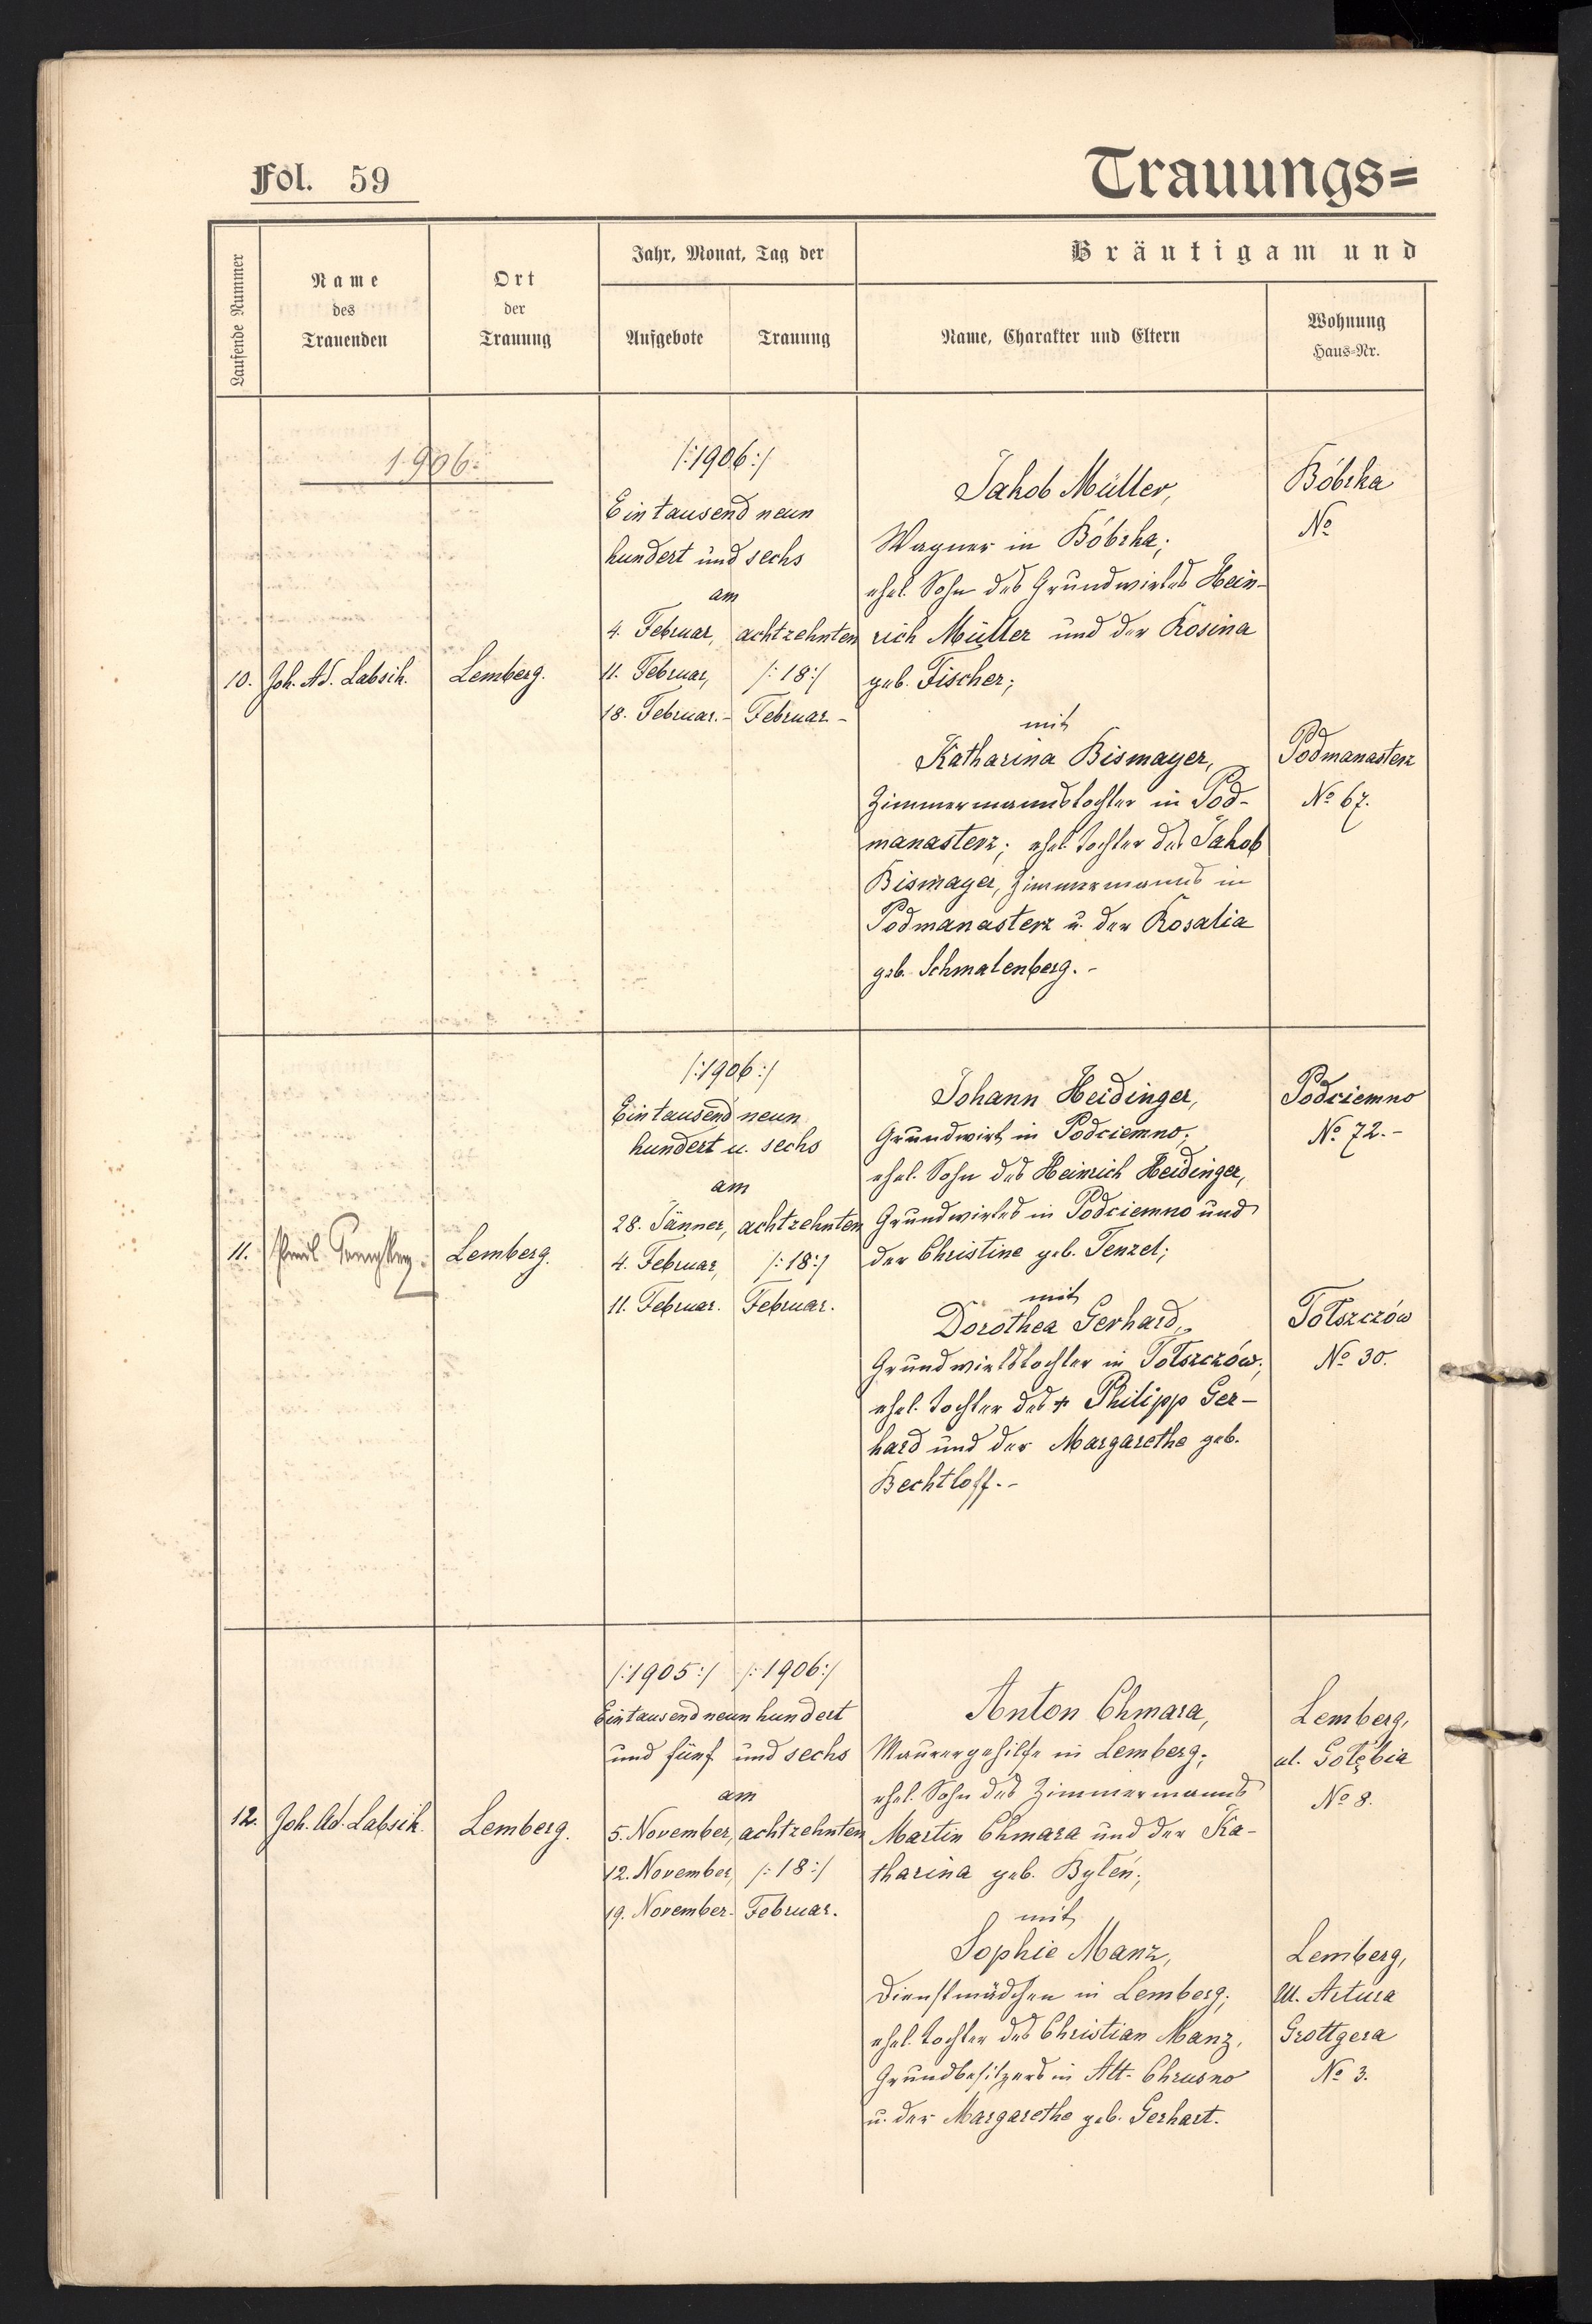 Fol. 59
Trauungs=
Laufende Nummer
Name
des
Trauenden
Ort
der
Trauung
Jahr, Monat, Tag der
Aufgebote
Trauung
Bräutigam und
Name, Charakter und Eltern
Wohnung
Haus-Nr.
1906.
10.
Joh. Ad. Labsik.
Lemberg.
/:1906:/
Ein tausend neun
hundert und sechs
am
4. Februar, achtzehnten
11. Februar, /:18:/
18. Februar.- Februar -
Jakob Müller,
Wagner in Bóbrka;
ehel. Sohn des Grundwirtes Hein-
rich Müller und der Rosina
geb. Fischer;
mit
Katharina Bismayer,
Zimmermannstochter in Pod-
manasterz; ehel. Tochter des Jakob
Bismayer, Zimmermanns in
Podmanasterz u. der Rosalia
geb. Schmalenberg. -
Bóbrka
No
Podmanasterz
No 67.
11.
Lemberg.
/:1906:/
Ein tausend neun
hundert u. sechs
am
28. Jänner, achtzehnten
4. Februar, /:18:/
11. Februar. Februar.
Johann Heidinger,
Grundwirt in Podciemno;
ehel. Sohn des Heinrich Heidinger,
Grundwirtes in Podciemno und
der Christine geb. Tenzel;
mit
Dorothea Gerhard,
Grundwirtstochter in Tołszczów;
ehel. Tochter des + Philipp Ger-
hard und der Margarethe geb.
Bechtloff. -
Podciemno
No 72. -
Tołszczów
No 30.
12.
Joh. Ad. Labsik.
Lemberg.
/:1905:/ /:1906:/
Ein tausend neun hundert
und fünf und sechs
am
5. November, achtzehnten
12. November, /:18:/
19. November. Februar.
Anton Chmara,
Maurergehilfe in Lemberg;
ehel. Sohn des Zimmermanns
Martin Chmara und der Ka-
tharina geb. Byleń;
mit
Sophie Manz,
Dienstmädchen in Lemberg;
ehel. Tochter des Christian Manz,
Grundbesitzers in Alt-Chrusno
u. der Margarethe geb. Gerhart.
Lemberg,
ul. Gołębia
No 8.
Lemberg,
Ul. Artura
Grottgera
No 3.